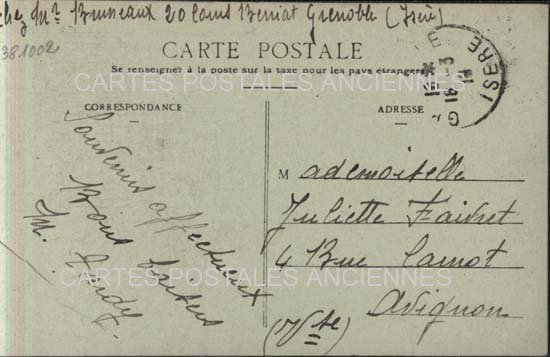 chez Mr Busseaux 20 Cours Berriat Grenoble (Isère)
381002
CARTE POSTALE
Se renseigner à la poste sur la taxe pour les pays étrangers
CARTES POSTALES ANCIENNES
CORRESPONDANCE
ADRESSE
Souvenirs affectueux
Bons baisers
M.
Mademoiselle
Juliette Faivret
4 Rue Carnot
Avignon
(Vse)
CARTES POSTALES ANCIENNES
ISERE